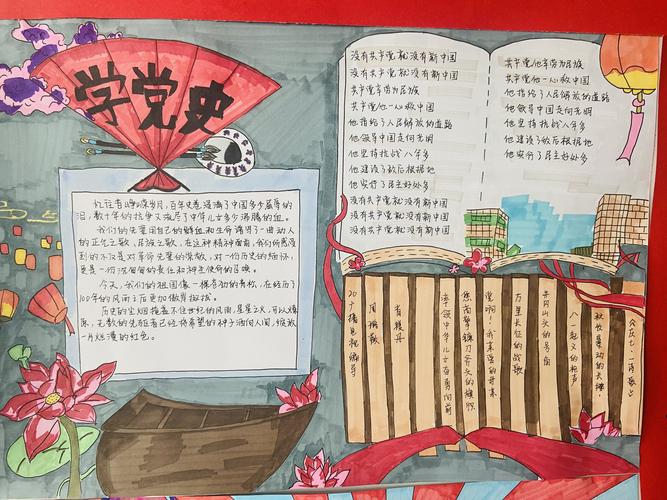 学党史
忆往昔峥嵘岁月，百年史卷浸满了中国多少屈辱的
泪，数十年的抗争又挥尽了中华儿女多少沸腾的血。
我们的先辈用自己的鲜血和生命谱写了一曲动人
的正气之歌，民族之歌，在这种精神面前，我们所感受
到的不仅是对革命先辈的崇敬，对一份历史的缅怀，
更是一份沉甸甸的责任和神圣使命的召唤。
今天，我们的祖国像一棵参天的青松，在经历了
100年的风雨之后更加傲岸挺拔。
历史的尘烟掩盖不住世纪的风雨，星星之火，可以燎
原，无数的先驱者已经将希望的种子洒向人间，绽放
一片烂漫的红色。
没有共产党就没有新中国
没有共产党就没有新中国
共产党辛劳为民族
共产党他一心救中国
他指给了人民解放的道路
他领导中国走向光明
他坚持抗战八年多
他建设了敌后根据地
他实行了民主好处多
没有共产党就没有新中国
没有共产党就没有新中国
共产党他辛劳为民族
共产党他一心救中国
他指给了人民解放的道路
他领导中国走向光明
他坚持抗战八年多
他建设了敌后根据地
他实行了民主好处多
八一起义的枪声
井冈山头的号角
万里长征的战歌
党啊！我亲爱的母亲
您高擎镰刀斧头的旗帜
率领中华儿女奋勇向前
肖牧丹
周楠歌
20广播电视编导